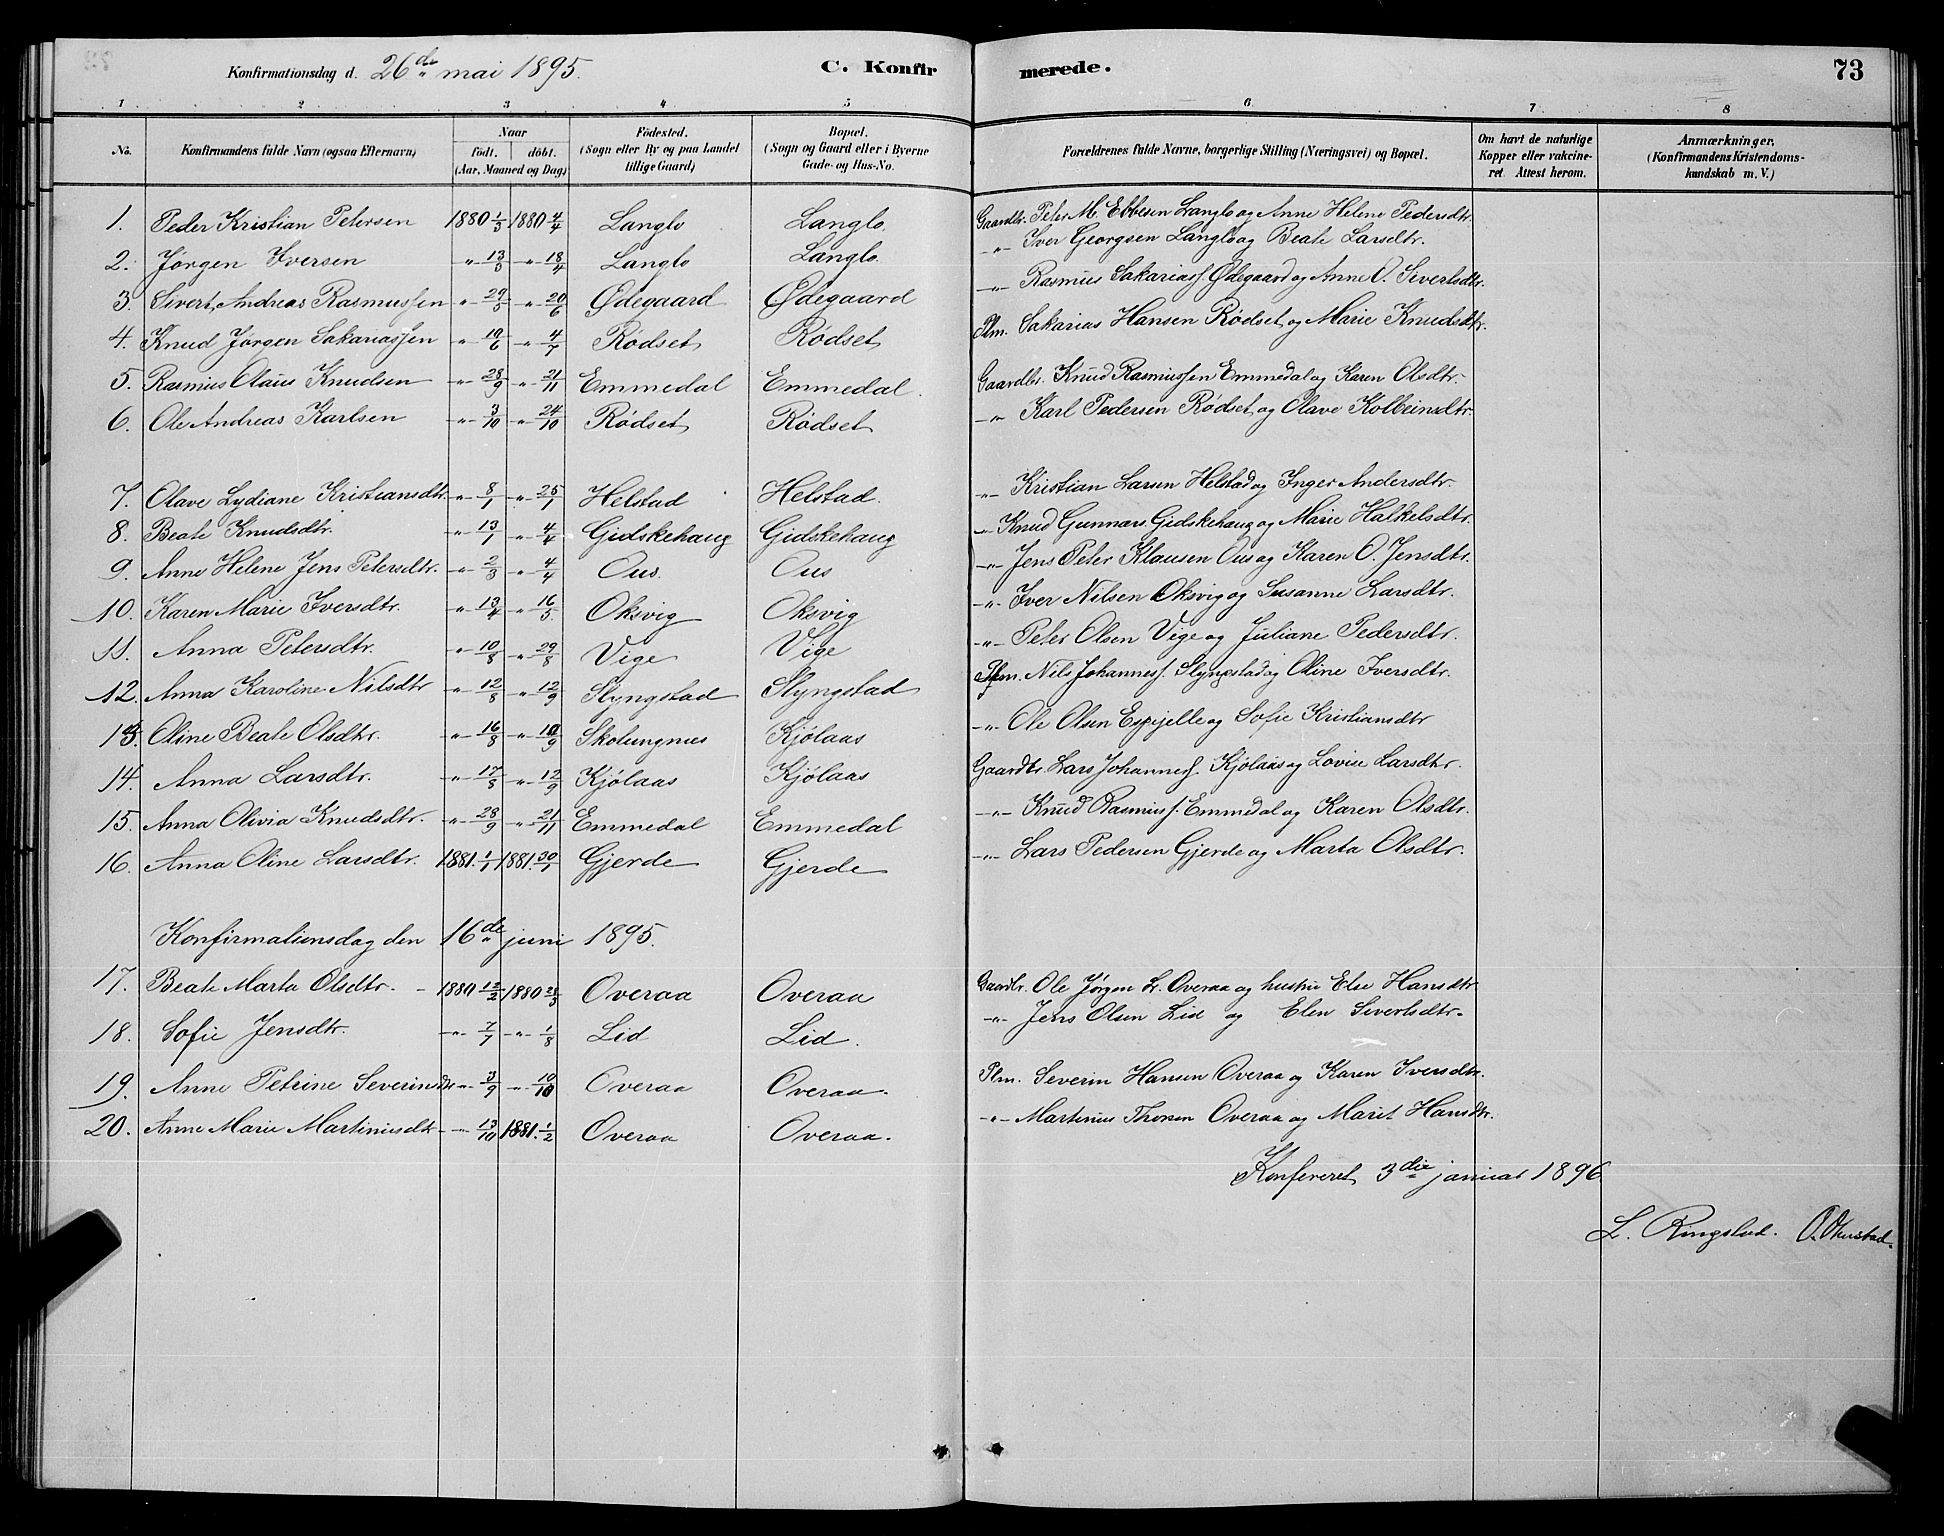 Konfirmationsdag d. 26de mai 1895. C. Konfirmerede. 73
1 2 3 4 5 6 7 8
No. Konfirmandens fulde Navn (ogsaa Efternavn) Naar født. døbt. (Aar, Maaned og Dag) Fødested. (Sogn eller By og paa Landet tillige Gaard) Bopæl. (Sogn og Gaard eller i Byerne Gade- og Hus-No. Forældrenes fulde Navne, borgerlige Stilling (Næringsvei) og Bopæl. Om havt de naturlige Kopper eller vakcineret. Attest herom. Anmærkninger, (Konfirmandens Kristendomskundskab m. V.)
1. Peder Kristian Petersen 1880 1/3 1880 4/4 Langlo Langlo. Gaardbr. Peter M. Ebbesen Langlo og Anne Helene Pedersdtr.
2. Jørgen Iversen -"- 13/3 -"- 18/4 Langlo Langlo. -"- Iver Georgsen Langlo og Beate Larsdtr.
3. Sivert Andreas Rasmussen -"- 29/5 -"- 20/6 Ødegaard Ødegaard -"- Rasmus Sakariass. Ødegaard og Anne O. Sivertsdtr.
4. Knud Jørgen Sakariassen -"- 19/6 -"- 4/7 Rødset Rødset Plm. Sakarias Hansen Rødset og Marie Knudsdtr.
5. Rasmus Olaus Knudsen -"- 28/9 -"- 21/11 Emmedal Emmedal. Gaardbr. Knud Rasmussen Emmedal og Karen Olsdtr.
6. Ole Andreas Karlsen -"- 3/10 -"- 24/10 Rødset Rødset -"- Karl Pedersen Rødset og Olave Kolbeinsdtr
7. Olave Lydiane Kristiansdtr. -"- 8/1 -"- 25/1 Helstad Helstad. -"- Kristian Larsen Helstad og Inger Andersdtr.
8. Beate Knudsdtr. -"- 13/1 -"- 4/4 Gidskehaug Gidskehaug -"- Knud Gunnars. Gidskehaug og Marie Halkelsdtr.
9. Anne Helene Jens Petersdtr. -"- 2/3 -"- 4/4 Ous. Ous -"- Jens Peter Klausen Ous og Karen O. Jensdtr.
10. Karen Marie Iversdtr. -"- 13/4 -"- 16/5. Oksvig Oksvig -"- Iver Nilsen Oksvig og Susanne Larsdtr.
11. Anna Petersdtr. -"- 10/8 -"- 29/8 Vige Vige -"- Peter Olsen Vige og Juliane Pedersdtr.
12. Anna Karoline Nilsdtr -"- 12/8 -"- 12/9 Slyngstad Slyngstad Plm. Nils Johanness. Slyngstad og Oline Iversdtr.
13. Oline Beate Olsdtr. -"- 16/8 -"- /9 Skotungnes Kjølaas -"- Ole Olsen Espjelle og Sofie Kristiansdtr
14. Anna Larsdtr. -"- 17/8 -"- 12/9 Kjølaas Kjølaas Gaardbr. Lars Johanness. Kjølaas og Lovise Larsdtr.
15. Anna Olivia Knudsdtr. -"- 28/9 -"- 21/11 Emmedal Emmedal -"- Knud Rasmuss. Emmedal og Karen Olsdtr.
16. Anna Oline Larsdtr. 1881. 1/1 1881. 30/1 Gjerde Gjerde -"- Lars Pedersen Gjerde og Marta Olsdtr.
Konfirmationsdag den 16de juni 1895.
17. Beate Marta Olsdtr. - 1880 12/2 1880 28/3 Overaa Overaa Gaardbr. Ole Jørgen L. Overaa og hustru Else Hansdtr
18. Sofie Jensdtr. -"- 7/7 -"- 1/8 Lid Lid. -"- Jens Olsen Lid og Elen Sivertsdtr.
19. Anne Petrine Severinsdtr -"- 3/9 -"- 10/10 Overaa Overaa. Plm. Severin Hansen Overaa og Karen Iversdtr.
20. Anne Marie Martinusdtr. -"- 13/10 1881. 1/2 Overaa Overaa. -"- Martinus Thorsen Overaa og Marit Hansdtr.
Konfereret 3die januar 1896.
L. Ringstad.